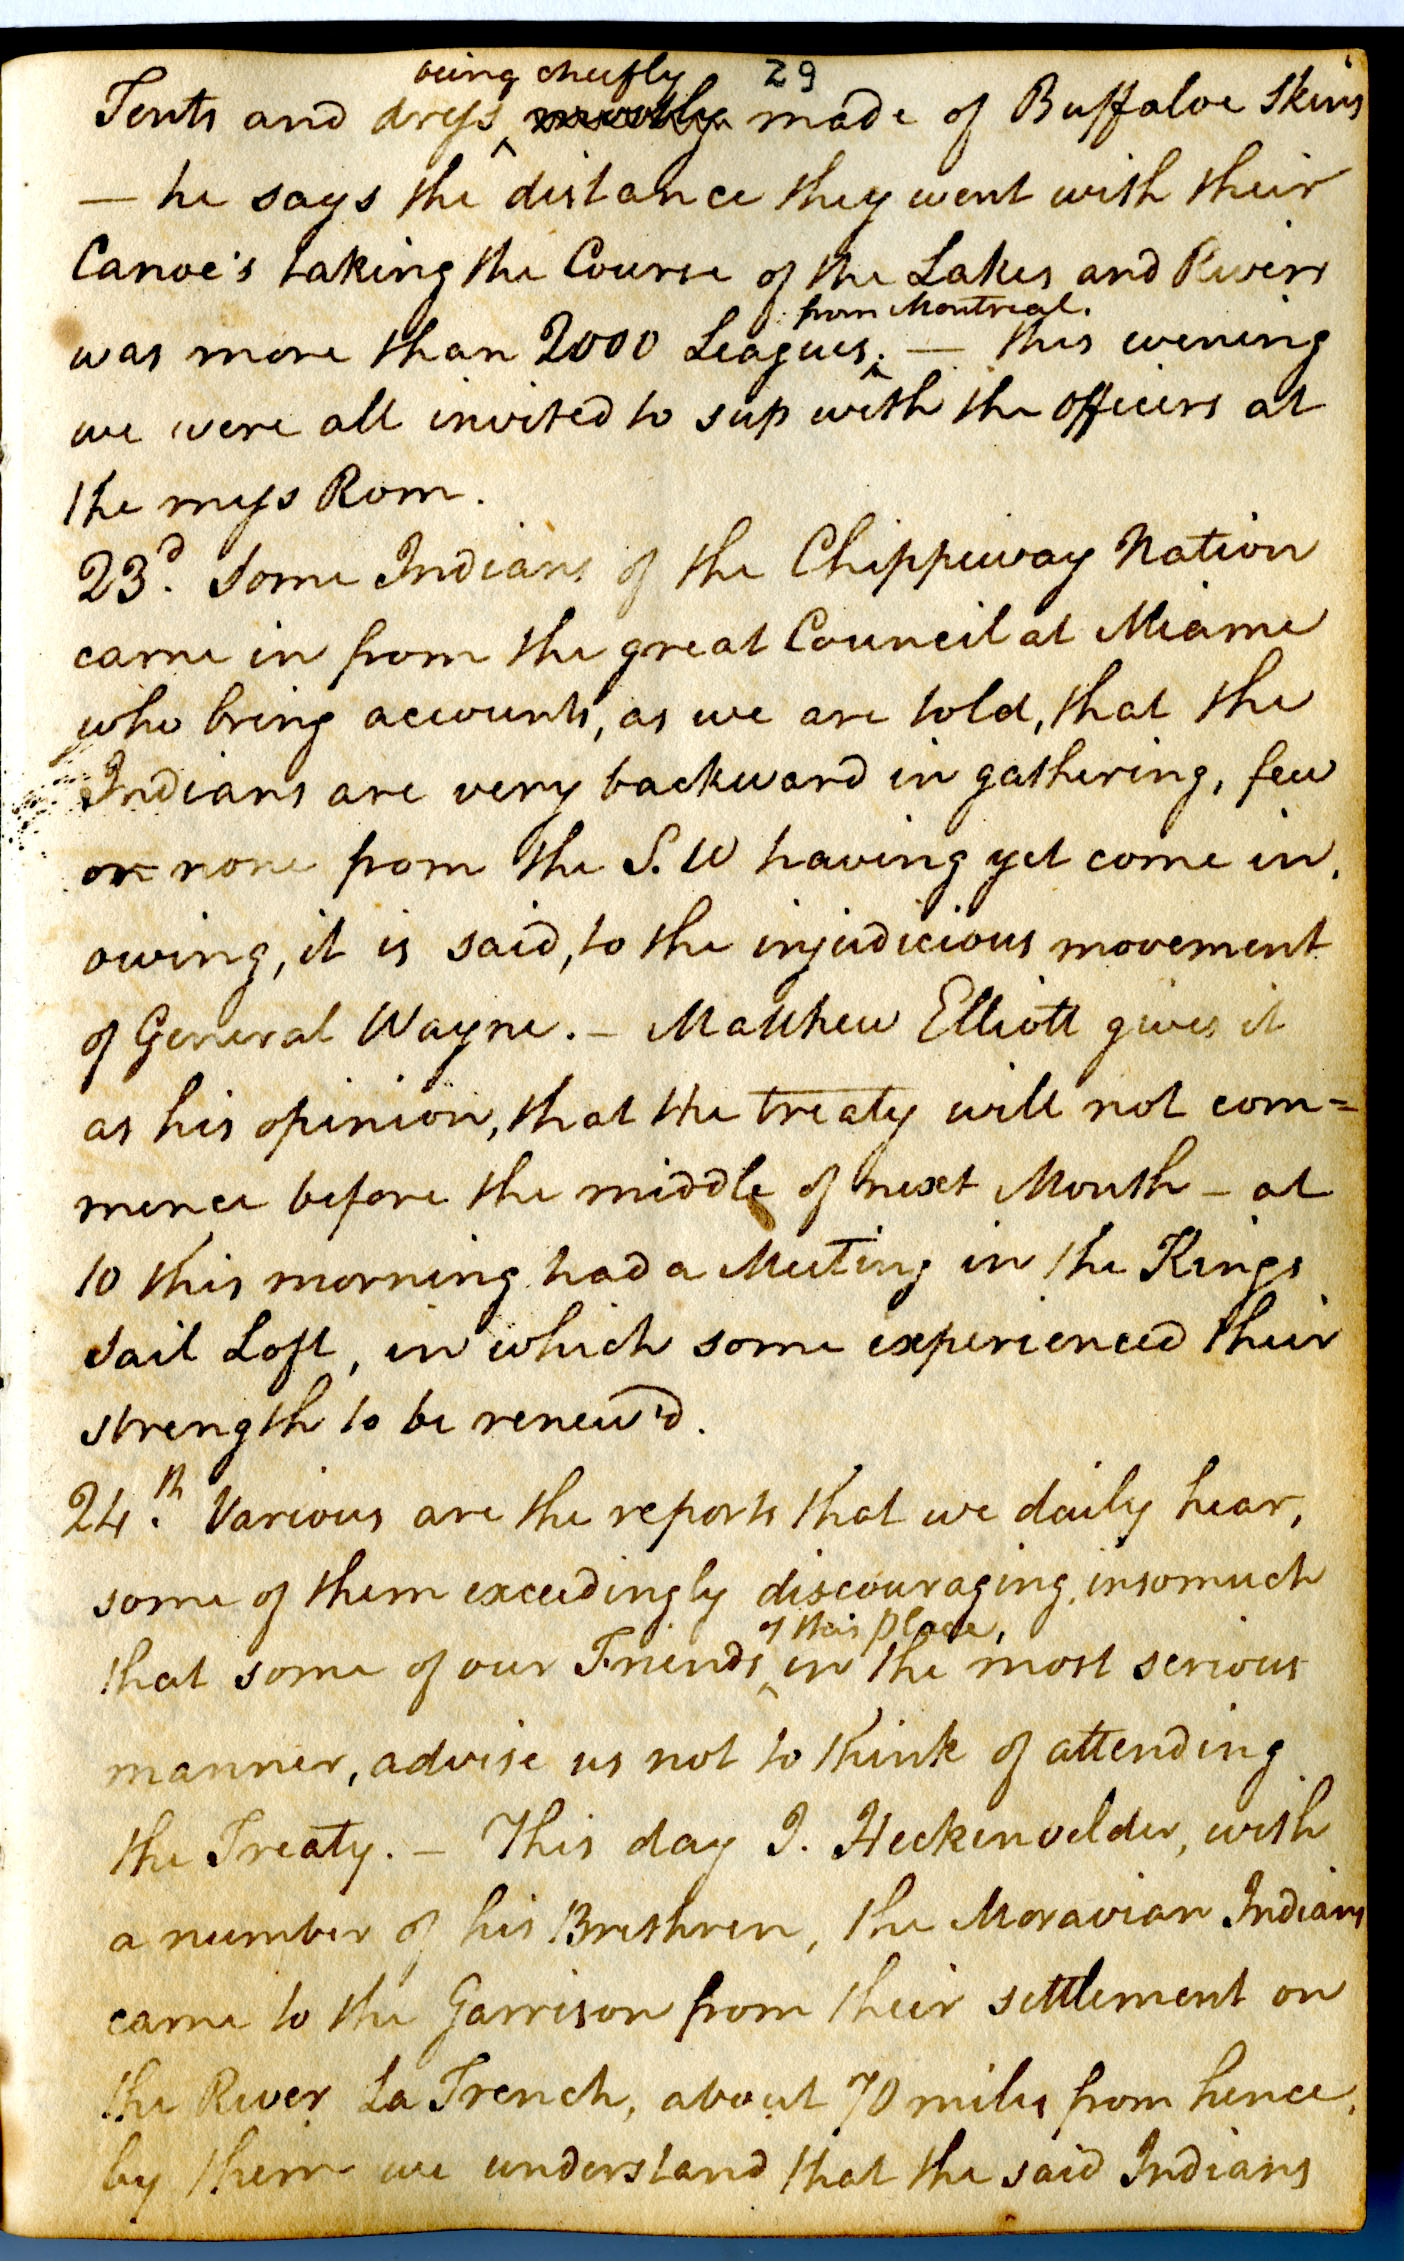 29
being cheefly
Tents and dress mostly made of Buffaloe Skins
— he says the distance they went with their
Canoe's taking the Course of the Lakes and Rivers
from Montreal.
was more than 2000 Leagues. — this evening
we were all invited to sup with the officers at
the mess Rom.
23d. Some Indians of the Chippeway Nation
came in from the great Council at Miame
who bring accounts, as we are told, that the
Indians are very backward in gathering, few
or none from the S. W having yet come in,
owing, it is said, to the injudicious movement
of General Wayne. – Matthew Elliott gives it
as his opinion, that the treaty will not com=
mence before the middle of next Month – at
10 this morning had a Meeting in the Kings
Sail Loft, in which some experienced their
strength to be renew'd.
24th. Various are the reports that we daily hear,
some of them exceedingly discouraging, insomuch
of this place,
that some of our Friends in the most serious
manner, advise us not to think of attending
the Treaty. – This day J. Heckenvelder, with
a number of his Brethren, the Moravian Indians
came to the Garrison from their settlement on
the River La Trench, about 70 miles from hence,
by them we understand that the said Indians